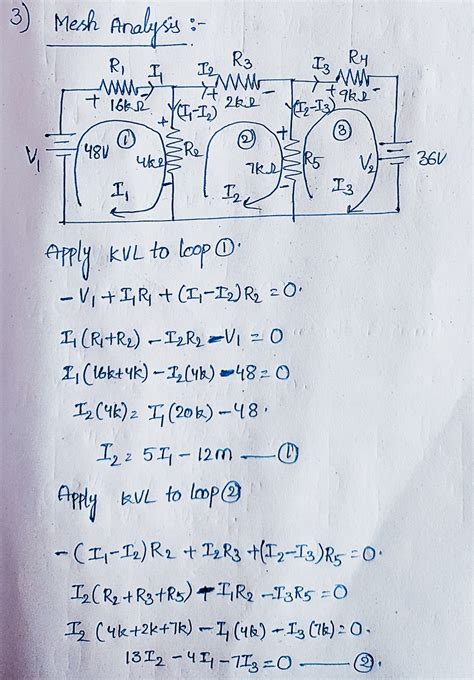 3) Mesh Analysis :-
R1 I1 I2 R3 I3 R4
+ 16kΩ - (I1-I2) + 2kΩ - (I2-I3) + 9kΩ -
V1 48V 1 4kΩ R2 2 7kΩ R5 3 V2 36V
I1 I2 I3
Apply KVL to loop ①.
-V1 + I1R1 + (I1-I2)R2 = 0.
I1(R1+R2) - I2R2 - V1 = 0
I1(16k+4k) - I2(4k) - 48 = 0
I2(4k) = I1(20k) - 48.
I2 = 5I1 - 12m — ①
Apply KVL to loop ②
-(I1-I2)R2 + I2R3 + (I2-I3)R5 = 0.
I2(R2+R3+R5) - I1R2 - I3R5 = 0
I2(4k+2k+7k) - I1(4k) - I3(7k) = 0.
13I2 - 4I1 - 7I3 = 0 — ②.